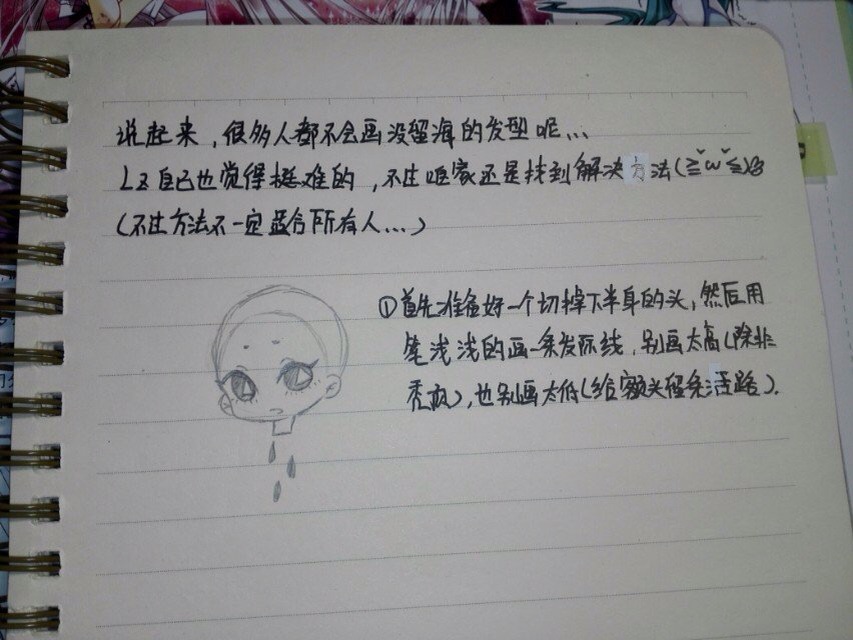 说起来，很多人都不会画没留海的发型呢...
Lz自己也觉得挺难的，不过咱家还是找到解决方法(≧ω≦)
(不过方法不一定适合所有人...)
①首先准备好一个切掉下半身的头，然后用
笔浅浅的画一条发际线，别画太高(除非
秃顶)，也别画太低(给额头留条活路).